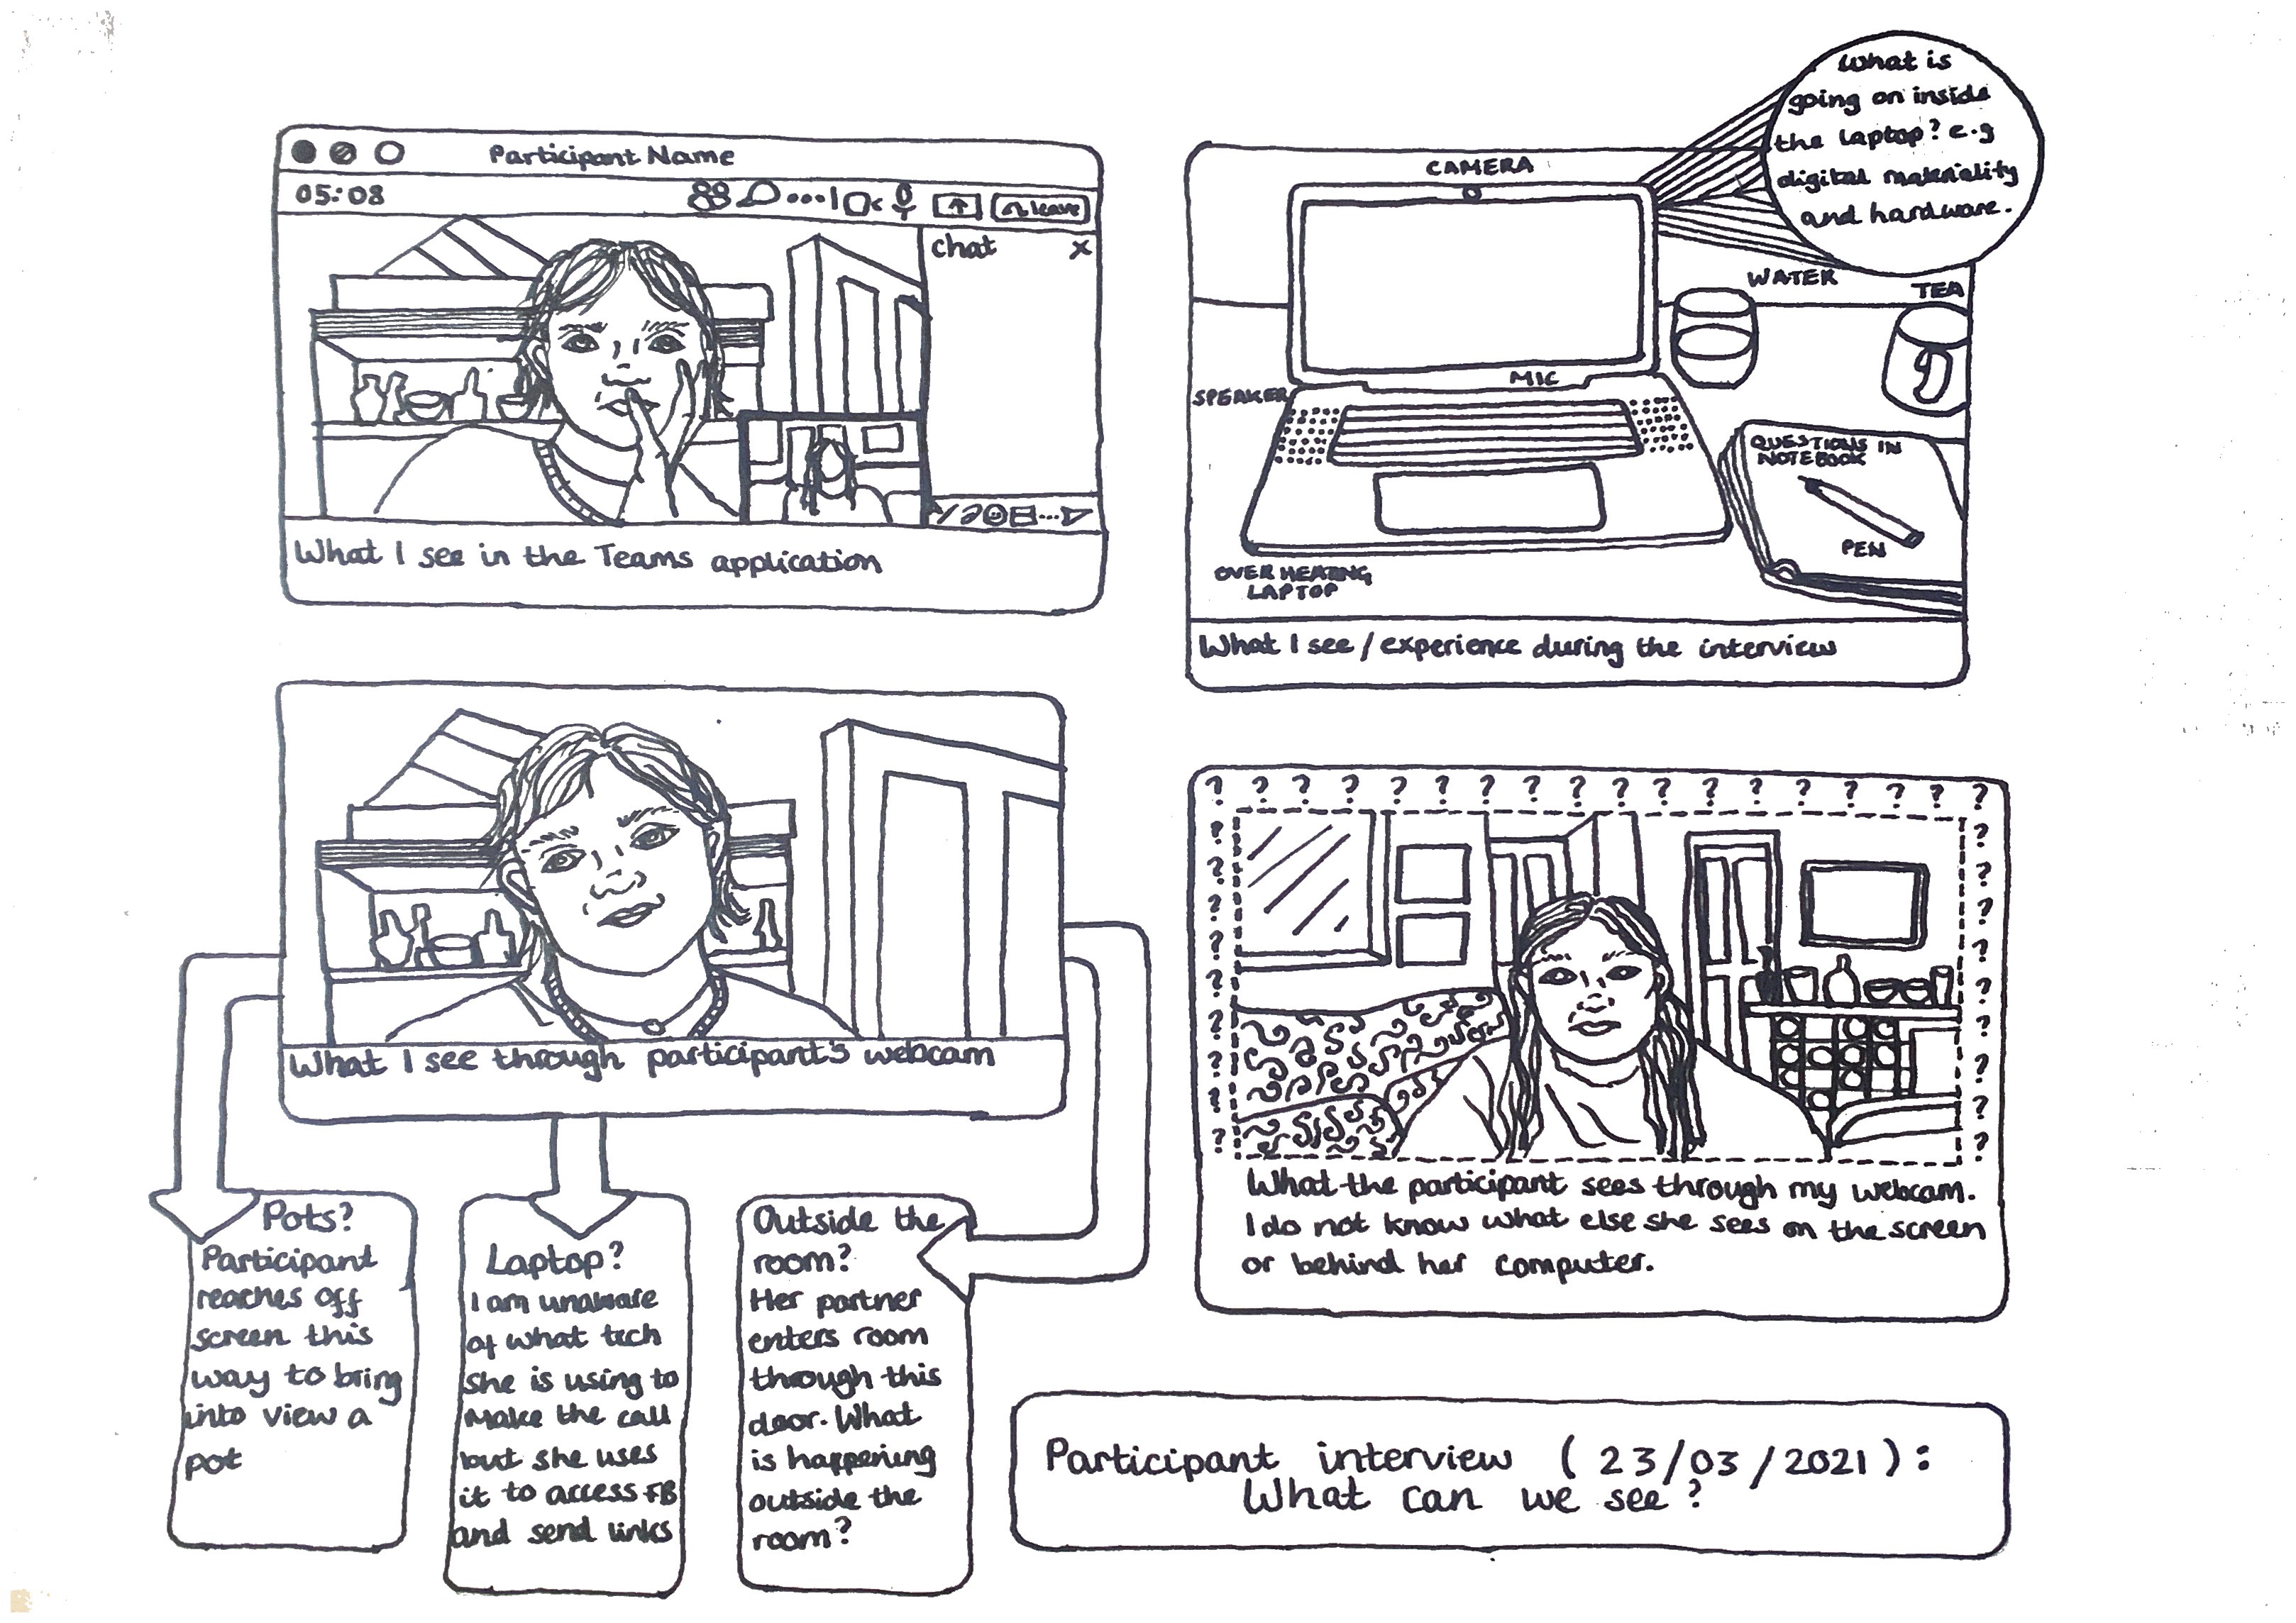 Participant Name
05:08
leave
chat x
What I see in the Teams application
What is
going on inside
the laptop? e.g
digital materiality
and hardware.
CAMERA
WATER
TEA
MIC
SPEAKER
QUESTIONS IN
NOTEBOOK
PEN
OVER HEATING
LAPTOP
What I see / experience during the interview
What I see through participant's webcam
Pots?
Participant
reaches off
screen this
way to bring
into view a
pot
Laptop?
I am unaware
of what tech
she is using to
Make the call
but she uses
it to access FB
and send links
Outside the
room?
Her partner
enters room
through this
door. What
is happening
outside the
room?
? ? ? ? ? ? ? ? ? ? ? ? ? ? ? ? ? ?
What the participant sees through my webcam.
I do not know what else she sees on the screen
or behind her computer.
Participant interview (23/03/2021):
What can we see?